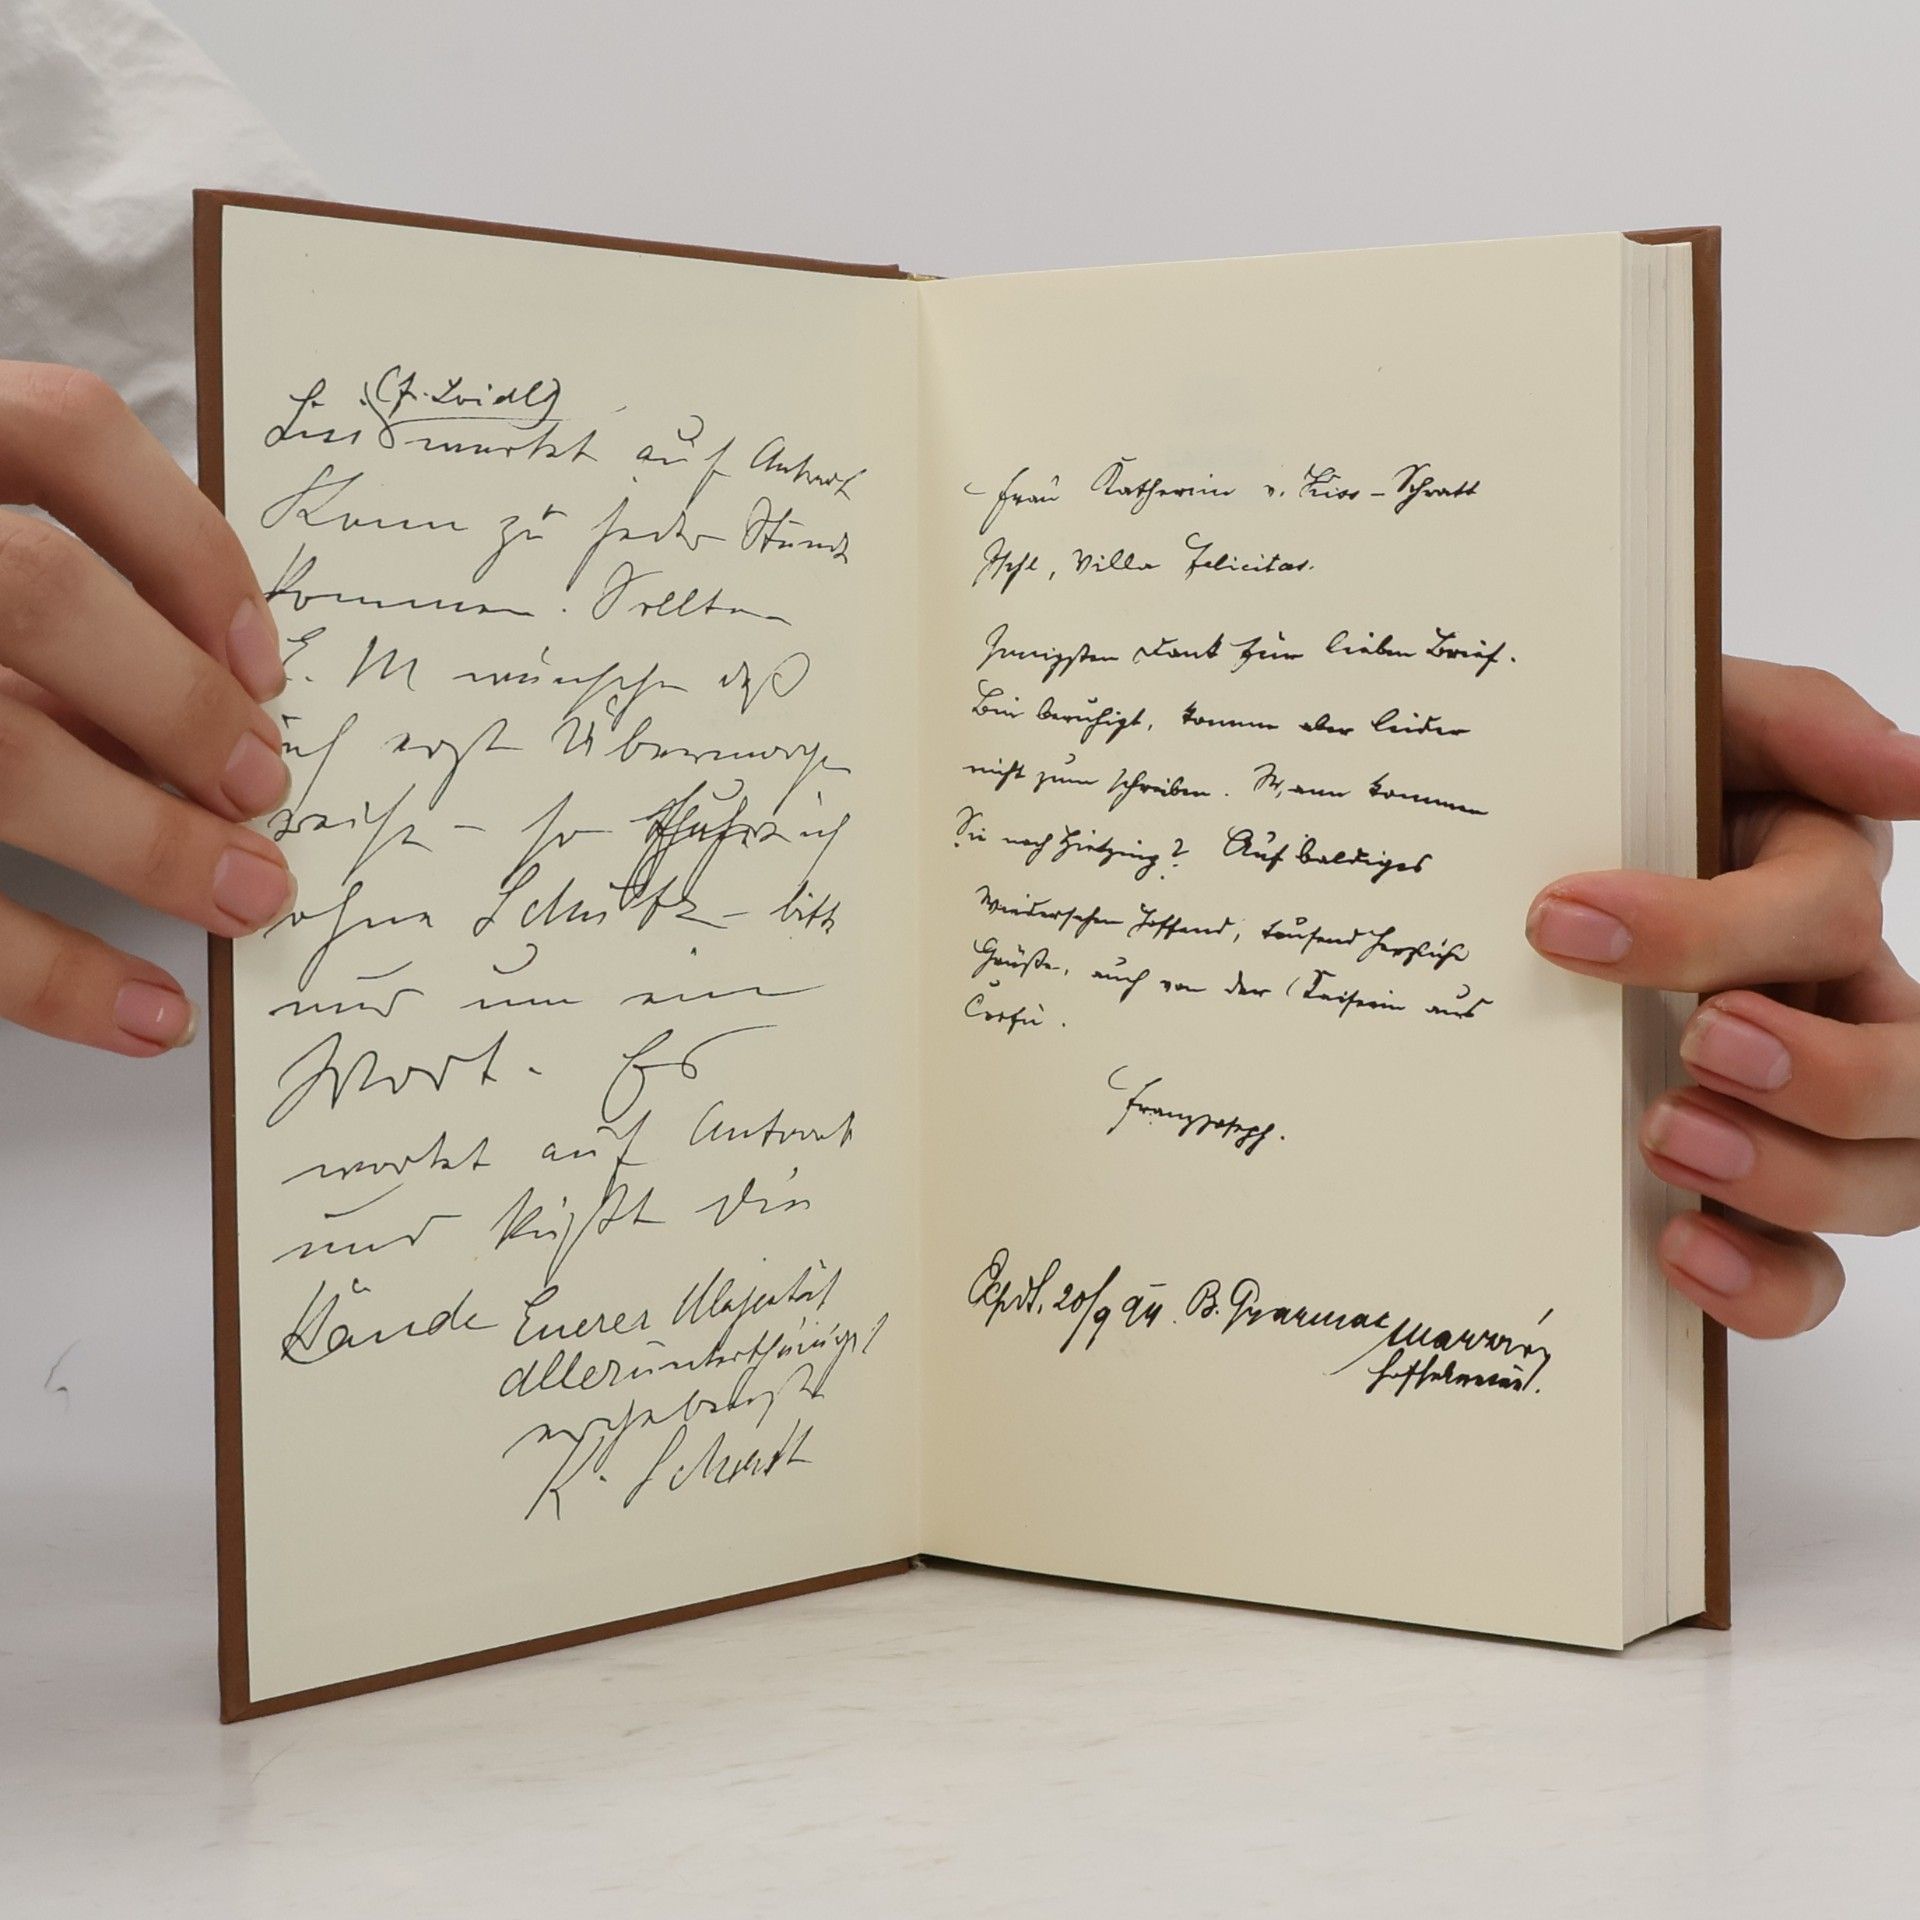 (F. Loidl)
wartet auf Antwort
Kann zu jeder Stunde
kommen. Sollten
E. M wünschen daß
ich erst Übermorgen
reise – so ich
ohne Schütz – bitte
nur um ein
Wort. Es
wartet auf Antwort
und küßt die
Hände Euerer Majestät
alleruntertänigst
ergebenste
K. Schratt
Frau Katharina v. Kiss-Schratt
Ischl, Villa Felicitas.
Innigsten Dank für lieben Brief.
Bin beruhigt, komme aber leider
nicht zum schreiben. Wann kommen
Sie nach Hietzing? Auf baldiges
Wiedersehen hoffend, tausend herzliche
Grüße, auch von der Kaiserin aus
Corfu.
Franz Joseph.
Expdt. 20/9 94. B.